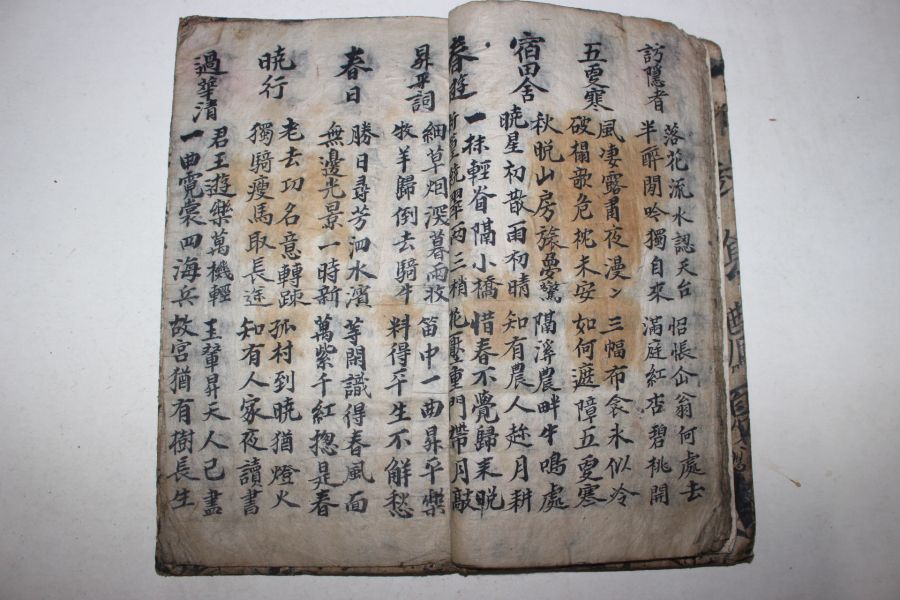 訪隱者
落花流水認天台 怊悵仚翁何處去
半酔閒吟獨自來 滿庭紅杏碧桃開
五更寒
風凄露肅夜漫ゝ 三幅布衾氷似冷
破榻欹危枕未安 如何遮障五更寒
宿田舍
秋晩山房旅夢驚 隔溪農畔牛鳴處
暁星初散雨初晴 知有農人趂月耕
春遊
一抹輕㫺隔小橋 惜春不覺歸来晩
晩翠兩三梢 花壓重門帶月敲
昇平詞
細草烟深暮雨收 笛中一曲昇平樂
牧羊歸倒去騎牛 料得平生不解愁
春日
勝日尋芳泗水濱 等閑識得春風面
無邊光景一時新 萬紫千紅揔是春
暁行
老去功名意轉踈 孤村到暁猶燈火
獨騎瘦馬取長途 知有人家夜讀書
過華清
君王遊樂萬機輕 玉輦昇天人已盡
一曲霓裳四海兵 故宮猶有樹長生